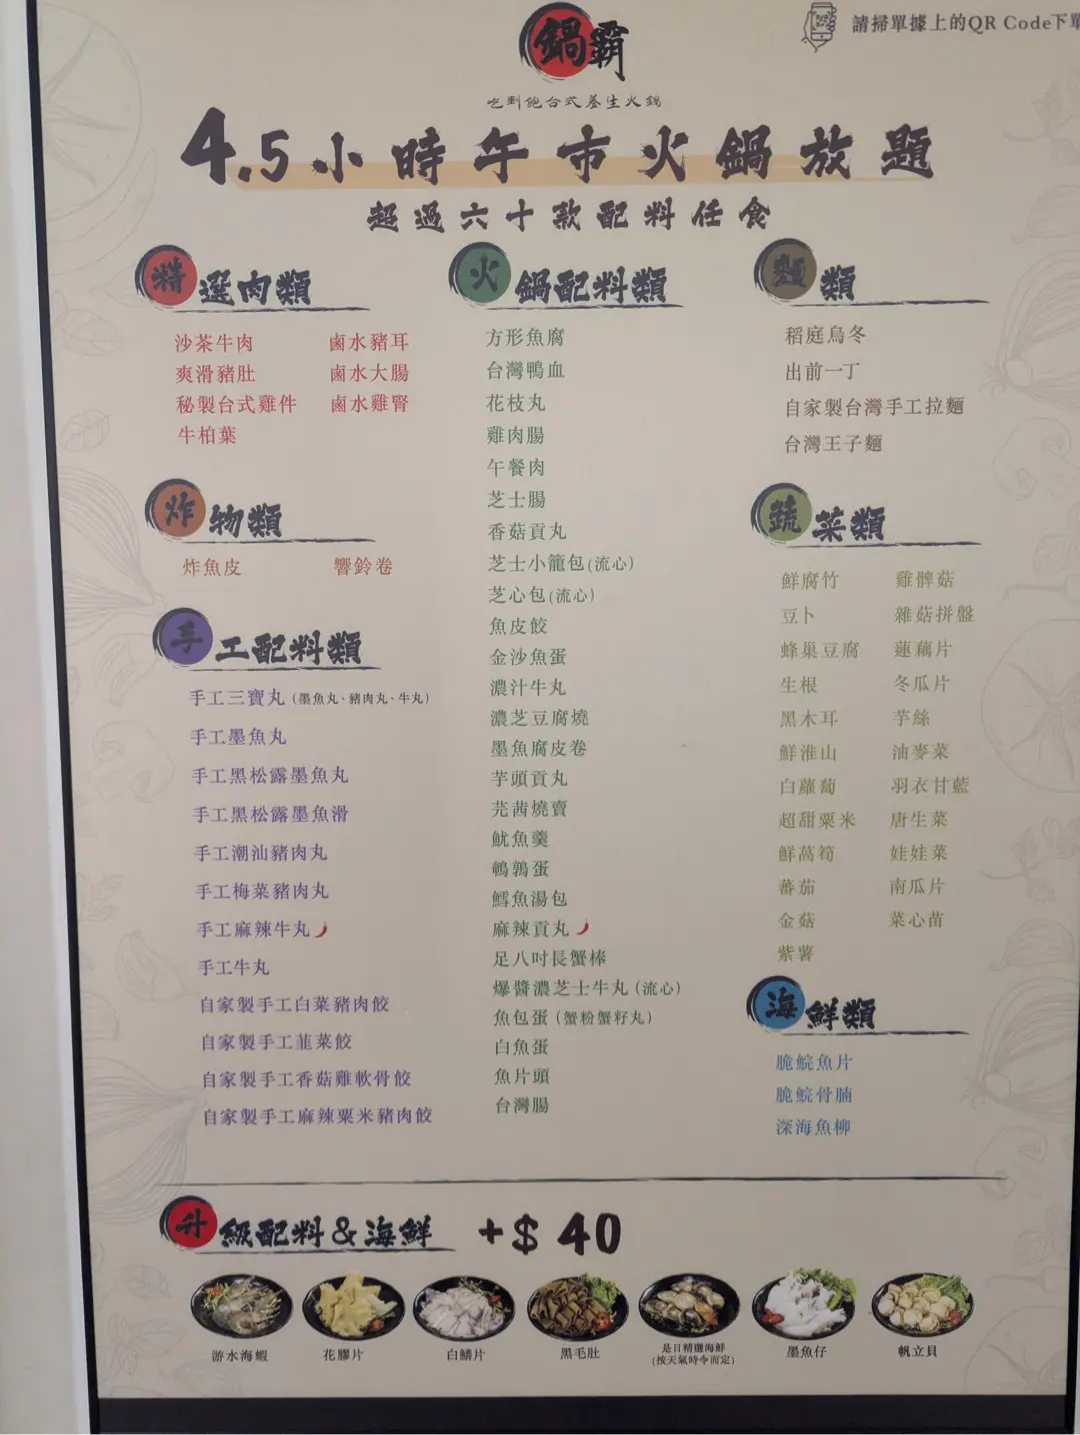 請掃單據上的QR Code下單
鍋霸
吃到飽台式養生火鍋
4.5小時午市火鍋放題
超過六十款配料任食
精選肉類
沙茶牛肉 鹵水豬耳
爽滑豬肚 鹵水大腸
秘製台式雞件 鹵水雞腎
牛柏葉
炸物類
炸魚皮 響鈴卷
手工配料類
手工三寶丸(墨魚丸、豬肉丸、牛丸)
手工墨魚丸
手工黑松露墨魚丸
手工黑松露墨魚滑
手工潮汕豬肉丸
手工梅菜豬肉丸
手工麻辣牛丸
手工牛丸
自家製手工白菜豬肉餃
自家製手工韮菜餃
自家製手工香菇雞軟骨餃
自家製手工麻辣粟米豬肉餃
火鍋配料類
方形魚腐
台灣鴨血
花枝丸
雞肉腸
午餐肉
芝士腸
香菇貢丸
芝士小籠包(流心)
芝心包(流心)
魚皮餃
金沙魚蛋
濃汁牛丸
濃芝豆腐燒
墨魚腐皮卷
芋頭貢丸
芫茜燒賣
魷魚羹
鵪鶉蛋
鱈魚湯包
麻辣貢丸
足八吋長蟹棒
爆醬濃芝士牛丸(流心)
魚包蛋(蟹粉蟹籽丸)
白魚蛋
魚片頭
台灣腸
麵類
稻庭烏冬
出前一丁
自家製台灣手工拉麵
台灣王子麵
蔬菜類
鮮腐竹 雞髀菇
豆卜 雜菇拼盤
蜂巢豆腐 蓮藕片
生根 冬瓜片
黑木耳 芋絲
鮮淮山 油麥菜
白蘿蔔 羽衣甘藍
超甜粟米 唐生菜
鮮萵筍 娃娃菜
蕃茄 南瓜片
金菇 菜心苗
紫薯
海鮮類
脆鯇魚片
脆鯇骨腩
深海魚柳
升級配料&海鮮 +$40
游水海蝦
花膠片
白鱔片
黑毛肚
是日精選海鮮
(按天氣時令而定)
墨魚仔
帆立貝